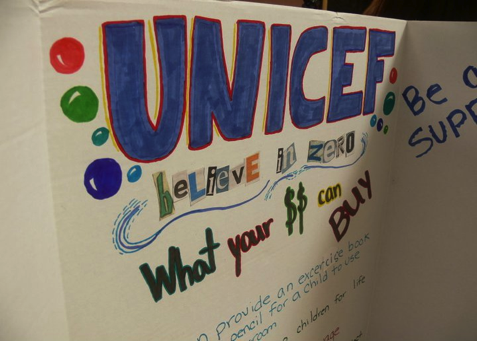 UNICEF
beLieve in ZERO
What your $$ can BUY
n provide an exercise book
pencil for a child to use
room
children for life
Be a
SUPP